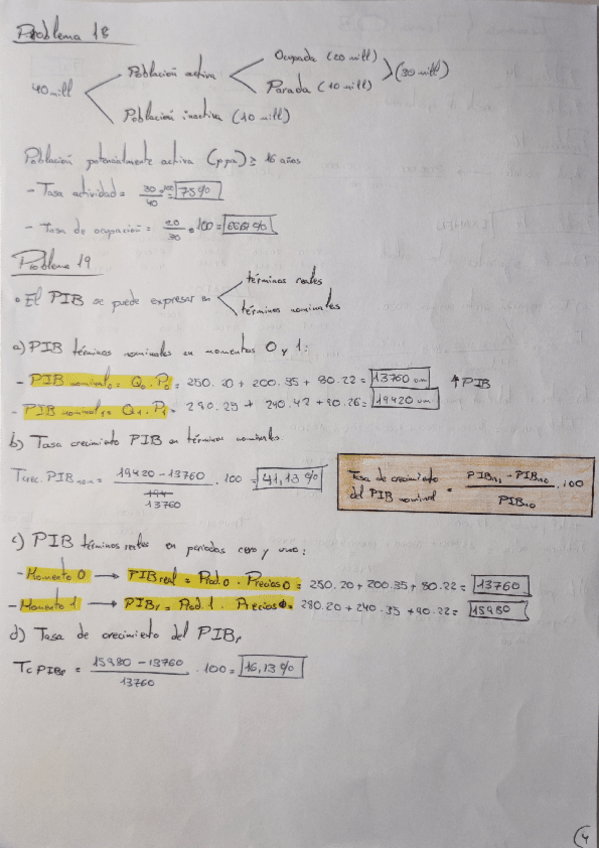 Problema 18
40 mill
Población activa
Ocupada (20 mill)
Parada (10 mill)
(30 mill)
Población inactiva (10 mill)
Población potencialmente activa (ppa) ≥ 16 años
- Tasa actividad = 30/40 · 100 = 75%
- Tasa de ocupación = 20/30 · 100 =
Problema 19
• El PIB se puede expresar en
términos reales
términos nominales
a) PIB términos nominales en momentos 0 y 1:
- PIB nominal0 = Q0 · P0 = 250·20 + 200·35 + 80·22 = 13760 um ↑ PIB
- PIB = Q1 · P1 = 280·25 + 240·42 + 90·26 = 19420 um
b) Tasa crecimiento PIB en términos nominales
Tcrec. PIB nom = 19420 - 13760 / 13760 · 100 = 41,13%
Tasa de crecimiento del PIB nominal = PIBn1 - PIBn0 / PIBn0 · 100
c) PIB términos reales en periodos cero y uno:
- Momento 0 → PIB real = Prod. 0 · Precios 0 = 250·20 + 200·35 + 80·22 = 13760
- Momento 1 → PIBr = Prod. 1 · Precios 0 = 280·20 + 240·35 + 90·22 = 15980
d) Tasa de crecimiento del PIBr
Tc PIBr = 15980 - 13760 / 13760 · 100 = 16,13%
4